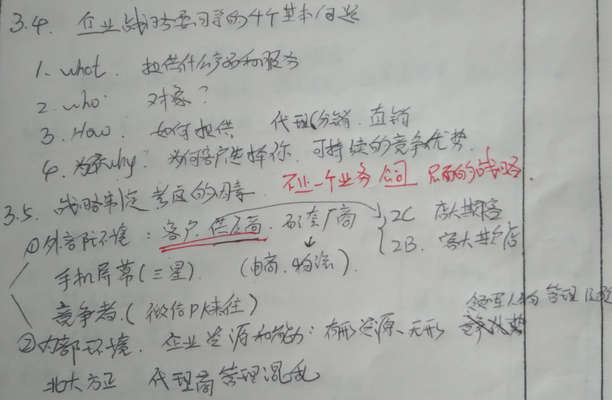 3.4. 企业战略要回答的4个基本问题
1. what. 提供什么产品和服务
2. who. 对象?
3. How. 如何提供 代理(分销. 直销
4. why? 为何客户选择你. 可持续的竞争优势.
在一个业务 层面的战略.
3.5. 战略制定考虑的因素
①外部环境: 客户. 供应商. 配套厂商 2C
2B.
手机屏幕(三星). (电商. 物流).
竞争者.(微信PK来往)
领军人物 管理
②内部环境. 企业资源和能力: 有形资源、无形
北大方正 代理商管理混乱